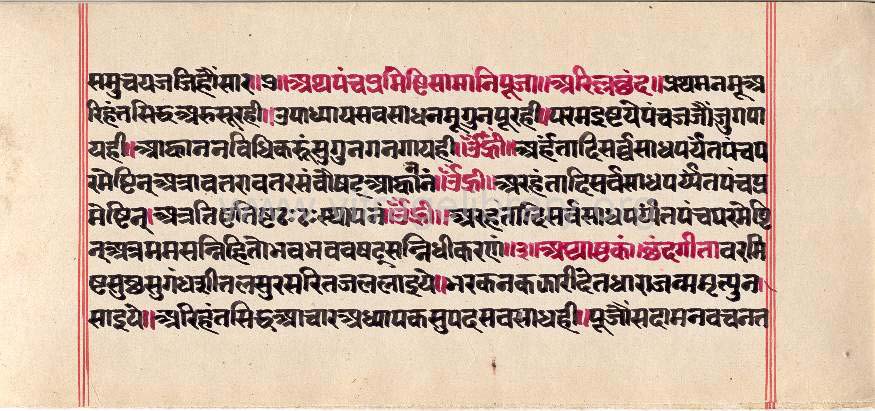 समुचयजजिहौंसार॥१॥अथपंचप्रमिष्टिसामानिपूजा॥अरिल्लछंद॥प्रथमनमूअ
रिहंतसिद्धअरुसूरही॥उपाध्यायसवसाधनमूगुनपूरही॥परमइष्टयेपंचजजौंजुगपा
यही॥आह्वाननविधिकरूंसुगुनगनगायही॥ॐह्रीं॥अर्हंतादिसर्व्वसाधपर्यंतपंचप
रमेष्टिन्अत्रावतरावतरसंवौषट्आह्वाननं॥ॐह्रीं॥अरहंतादिसर्वसाधपर्य्यंतपंचप्र
मेष्टिन्॥अत्रतिष्टतिष्टठःठःस्थापनं॥ॐह्रीं॥अरहंतादिसर्वसाधपर्यंतपंचपरमेष्टि
न्अत्रममसन्निहितोभवभववषट्सन्निधीकरणं॥३॥अथाष्टकं॥छंदगीतावरमि
ष्टसुछसुगंधशीतलसुरसरितजललाइये॥भरकनकझारीदेतधाराजन्ममृत्युन
साइये॥अरिहंतसिद्धआचारअध्यापकसुपदसवसाधही॥पूजौंसदामनवचनत
www.vitragelibrary.org